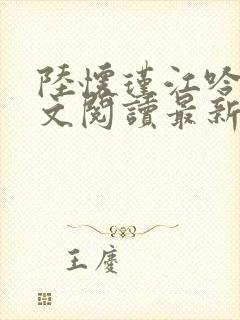 陸懷瑾江吟
文閱讀最新
王慶